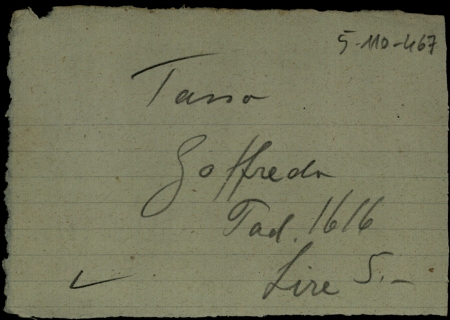 5-110-467
Tasso
Goffredo
Pad. 1616
Lire 5.-